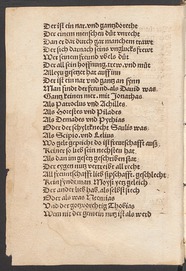 Der ist ein nar, vnd gantz dorecht
Der einem menschen důt vnrecht
Dan er das durch gar manchen trowt
Der sich darnach seins vnglucks frewt
Wer seinem freund vbels důt
Der all sein hoffnung, trew, vnd můt
Alleyn gesetzet hat auff inn
Der ist ein nar vnd gantz an synn
Man findt der freund als Dauid was
Gantz keinen mer, mit Jonathas
Als Patroclus vnd Achilles
Als Horestes vnd Pilades
Als Demades vnd Pythias
Oder der schyltknecht Saulis was
Als Scipio vnd Lelius
Wo gelt gepricht do ist freuntschafft auß
Keiner so lieb sein nechsten hat
Als dan im gesetz geschriben stat
Der eygen nutz vertreibt all recht
All freuntschafft lieb sipschafft, geschlecht
Kein fyndt man Moysi yetz geleich
Der ander lieb hab, als selbs sich
Oder als was Neemias
Vnd der gotsvorchtig Thobias
Wem nit der gemein nutz ist als werd